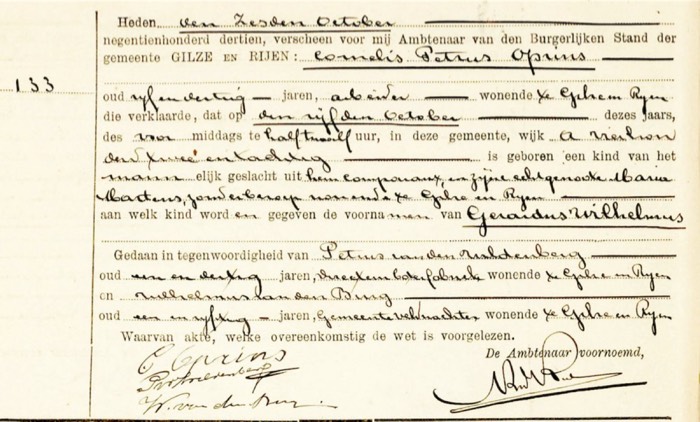 Heden den zesden October
negentienhonderd dertien, verscheen voor mij Ambtenaar van den Burgerlijken Stand der
gemeente GILZE EN RIJEN: Cornelis Petrus Oprins
133
oud vijfendertig jaren, arbeider wonende te Gilze en Ryen
die verklaarde, dat op den vijfden October dezes jaars,
des voor middags te half twaalf uur, in deze gemeente, wijk A vierhon
derd twee en tachtig is geboren een kind van het
mann elijk geslacht uit hem comparant, en zijne echtgenoote Maria
Martens, zonder beroep wonende te Gilze en Ryen
aan welk kind word en gegeven de voorna men van Gerardus Wilhelmus
Gedaan in tegenwoordigheid van Petrus van den
oud een en dertig jaren, wonende te Gilze en Ryen
en Wilhelmus van den Burg
oud een en vijftig jaren, Gemeenteveldwachter wonende te Gilze en Ryen
Waarvan akte, welke overeenkomstig de wet is voorgelezen.
De Ambtenaar voornoemd,
C Oprins
W. van den Burg